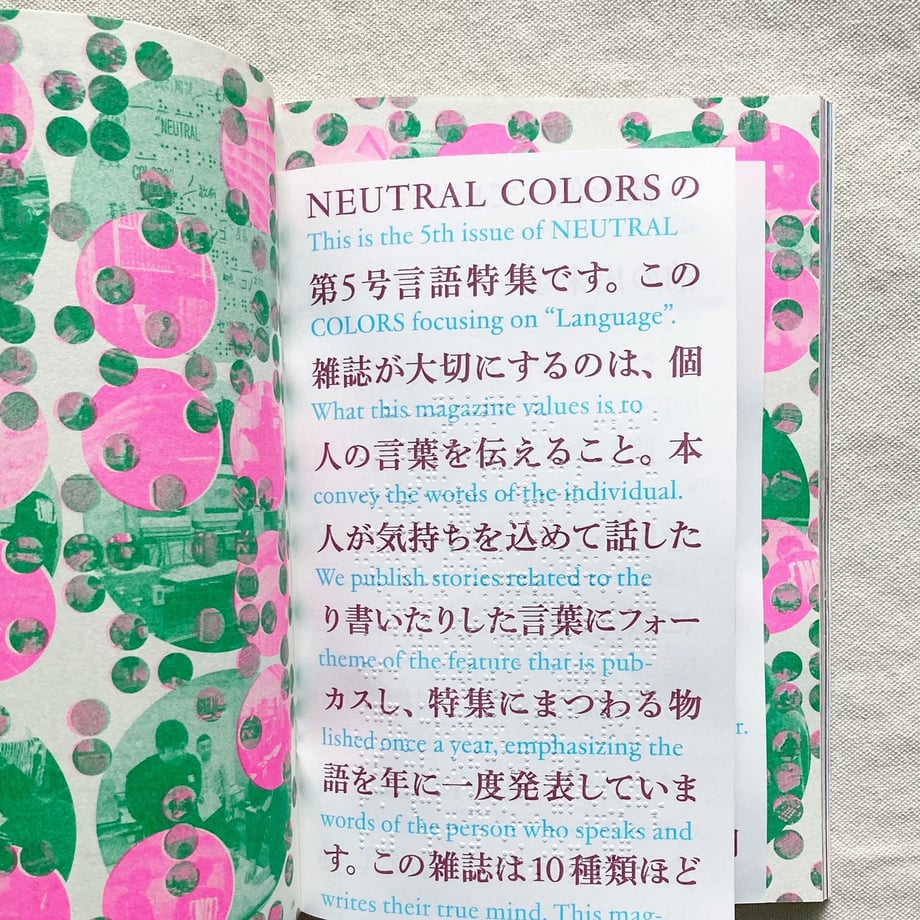 "NEUTRAL
NEUTRAL COLORSの
This is the 5th issue of NEUTRAL
第5号言語特集です。この
COLORS focusing on “Language”.
雑誌が大切にするのは、個
What this magazine values is to
人の言葉を伝えること。本
convey the words of the individual.
人が気持ちを込めて話した
We publish stories related to the
り書いたりした言葉にフォー
theme of the feature that is pub-
カスし、特集にまつわる物
lished once a year, emphasizing the
語を年に一度発表していま
words of the person who speaks and
す。この雑誌は10種類ほど
writes their true mind. This mag-
r.